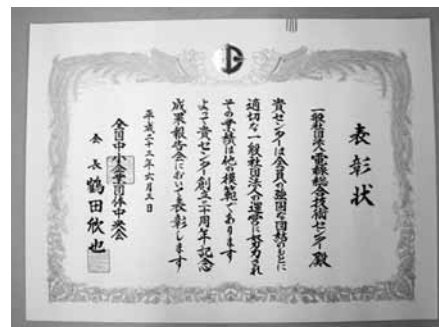 表彰状
一般社団法人電線総合技術センター殿
貴センターは会員の強固な団結のもとに
適切な一般社団法人の運営に努力され
その業績は他の模範であります
よって貴センター創立二十周年記念
成果報告会において表彰します
平成二十三年六月三日
全国中小企業団体中央会
会長 鶴田欣也